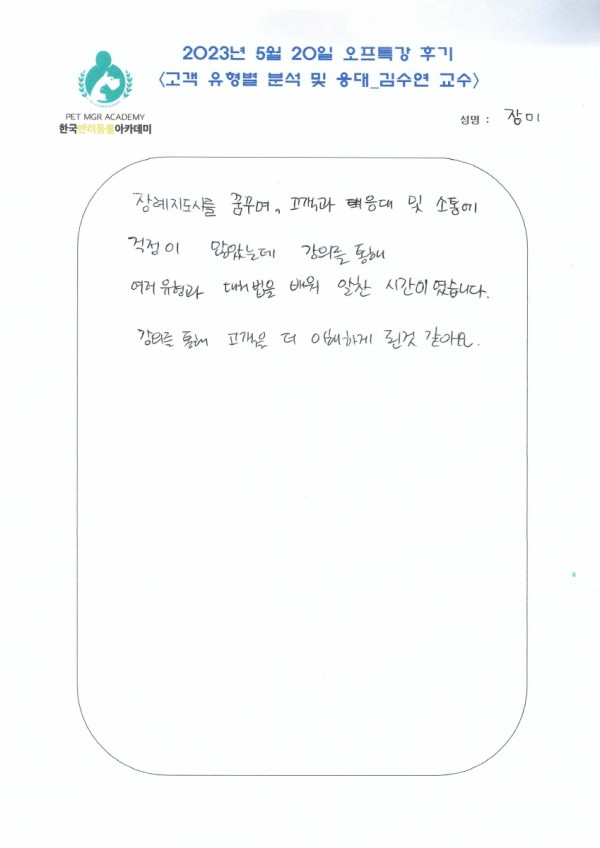 2023년 5월 20일 오프특강 후기
<고객 유형별 분석 및 응대_김수연 교수>
PET MGR ACADEMY
한국반려동물아카데미
성명 : 장미
장례지도사를 꿈꾸며, 고객과 응대 및 소통에
걱정이 많았는데 강의를 통해
여러유형과 대처법을 배워 알찬 시간이였습니다.
강의를 통해 고객을 더 이해하게 된것 같아요.